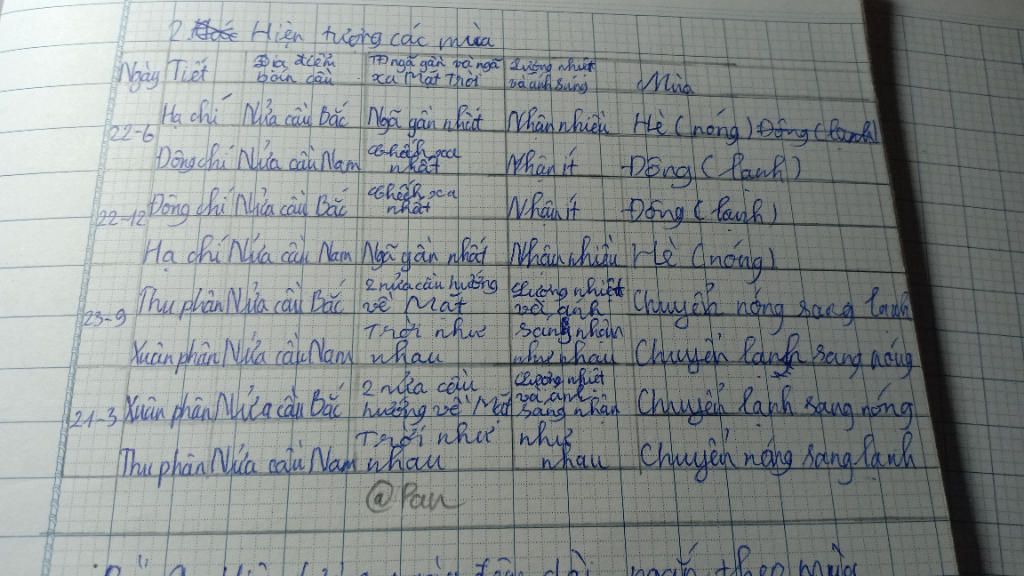 2. Hiện tượng các mùa
Ngày Tiết Địa điểm bán cầu TĐ ngả gần và ngả xa Mặt Trời Lượng nhiệt và ánh sáng Mùa
22-6 Hạ chí Nửa cầu Bắc Ngả gần nhất Nhận nhiều Hè (nóng) Đông (lạnh)
Đông chí Nửa cầu Nam Chếch xa nhất Nhận ít Đông (lạnh)
22-12 Đông chí Nửa cầu Bắc Chếch xa nhất Nhận ít Đông (lạnh)
Hạ chí Nửa cầu Nam Ngả gần nhất Nhận nhiều Hè (nóng)
23-9 Thu phân Nửa cầu Bắc 2 nửa cầu hướng về Mặt Lượng nhiệt và ánh Chuyển nóng sang lạnh
Xuân phân Nửa cầu Nam Trời như nhau sáng nhận như nhau Chuyển lạnh sang nóng
21-3 Xuân phân Nửa cầu Bắc 2 nửa cầu hướng về Mặt Lượng nhiệt và ánh sáng nhận Chuyển lạnh sang nóng
Thu phân Nửa cầu Nam Trời như nhau như nhau Chuyển nóng sang lạnh
@Pan